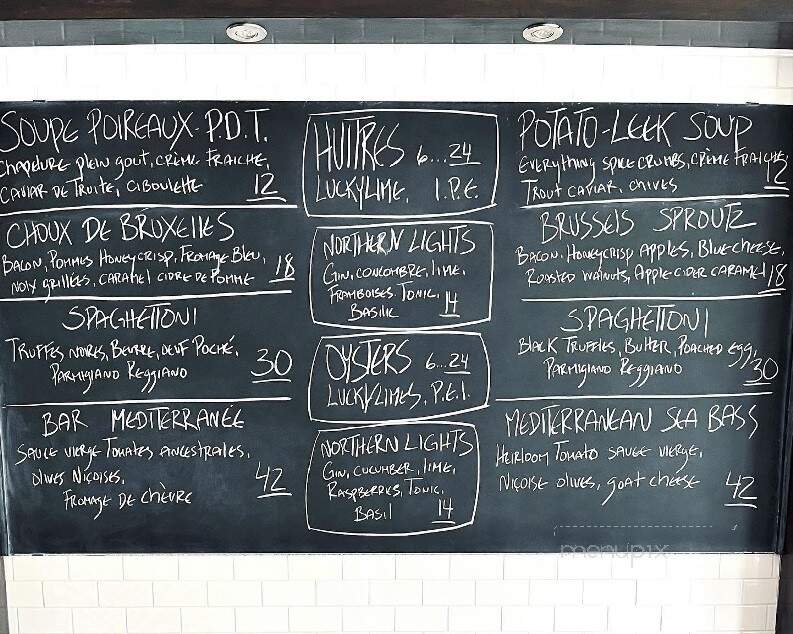 SOUPE POIREAUX-P.D.T.
CHAPELURE PLEIN GOUT, CRÈME FRAICHE,
CAVIAR DE TRUITE, CIBOULETTE 12
CHOUX DE BRUXELLES
BACON, POMMES HONEYCRISP, FROMAGE BLEU,
NOIX GRILLÉES, CARAMEL CIDRE DE POMME 18
SPAGHETTONI
TRUFFES NOIRES, BEURRE, OEUF POCHÉ,
PARMIGIANO REGGIANO 30
BAR MEDITERRANÉE
SAUCE VIERGE TOMATES ANCESTRALES,
OLIVES NIÇOISES,
FROMAGE DE CHÈVRE 42
HUITRES 6...24
LUCKYLIME, I.P.E.
NORTHERN LIGHTS
GIN, CONCOMBRE, LIME,
FRAMBOISES, TONIC,
BASILIC 14
OYSTERS 6...24
LUCKYLIMES, P.E.I.
NORTHERN LIGHTS
GIN, CUCUMBER, LIME,
RASPBERRIES, TONIC,
BASIL 14
POTATO-LEEK SOUP
EVERYTHING SPICE CRUMBS, CRÈME FRAICHE,
TROUT CAVIAR, CHIVES 12
BRUSSELS SPROUTZ
BACON, HONEYCRISP APPLES, BLUE CHEESE,
ROASTED WALNUTS, APPLE CIDER CARAMEL 18
SPAGHETTONI
BLACK TRUFFLES, BUTTER, POACHED EGG,
PARMIGIANO REGGIANO 30
MEDITERRANEAN SEA BASS
HEIRLOOM TOMATO SAUCE VIERGE,
NIÇOISE OLIVES, GOAT CHEESE 42
menupix